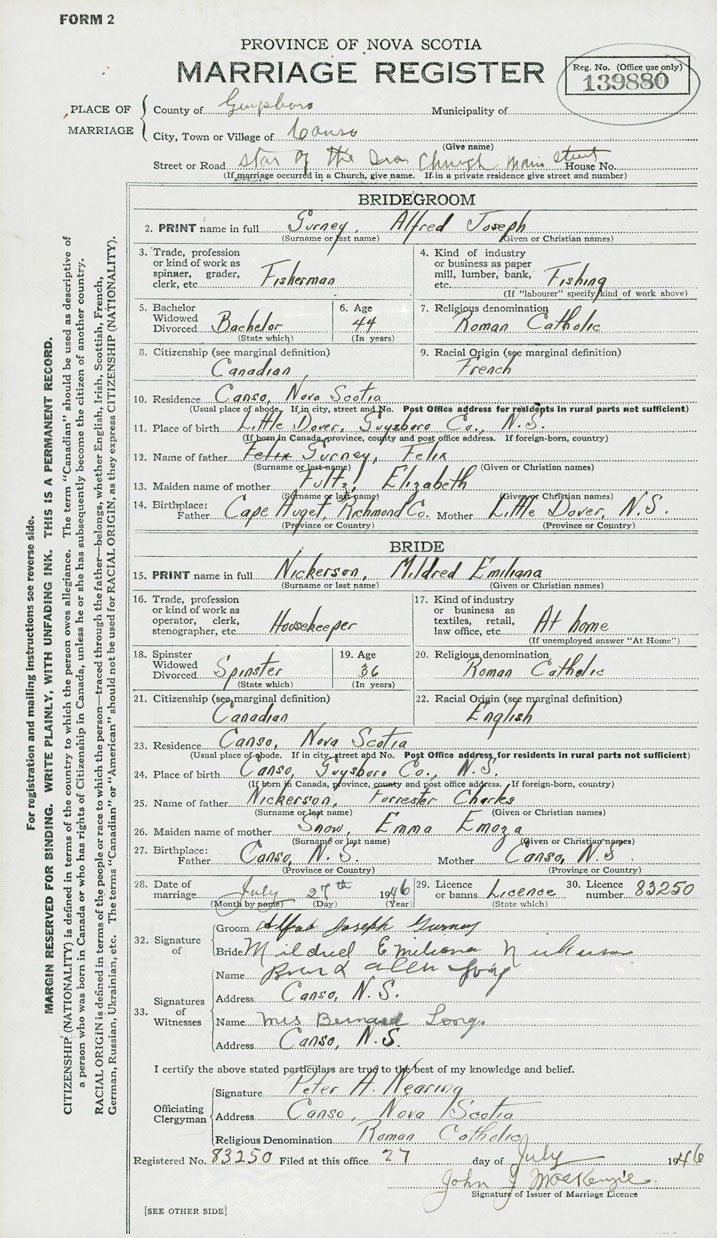 FORM 2
PROVINCE OF NOVA SCOTIA
MARRIAGE REGISTER
Reg. No. (Office use only)
139880
PLACE OF MARRIAGE
County of Guysboro Municipality of
City, Town or Village of Canso
(Give name)
Street or Road Star of the Sea Church Main Street House No.
(If marriage occurred in a Church, give name. If in a private residence give street and number)
BRIDEGROOM
2. PRINT name in full Gurney, Alfred Joseph
(Surname or last name) (Given or Christian names)
3. Trade, profession or kind of work as spinner, grader, clerk, etc. Fisherman
4. Kind of industry or business as paper mill, lumber, bank, etc. Fishing
(If "labourer" specify kind of work above)
5. Bachelor Widowed Divorced Bachelor
(State which)
6. Age 44
(In years)
7. Religious denomination Roman Catholic
8. Citizenship (see marginal definition) Canadian
9. Racial Origin (see marginal definition) French
10. Residence Canso, Nova Scotia
(Usual place of abode. If in city, street and No. Post Office address for residents in rural parts not sufficient)
11. Place of birth Little Dover, Guysboro Co., N.S.
(If born in Canada, province, county and post office address. If foreign-born, country)
12. Name of father Felix Gurney, Felix
(Surname or last name) (Given or Christian names)
13. Maiden name of mother Fultz, Elizabeth
(Surname or last name) (Given or Christian names)
14. Birthplace: Father Cape Auget, Richmond Co. Mother Little Dover, N.S.
(Province or Country) (Province or Country)
BRIDE
15. PRINT name in full Nickerson, Mildred Emiliana
(Surname or last name) (Given or Christian names)
16. Trade, profession or kind of work as operator, clerk, stenographer, etc. Housekeeper
17. Kind of industry or business as textiles, retail, law office, etc. At home
(If unemployed answer "At Home")
18. Spinster Widowed Divorced Spinster
(State which)
19. Age 36
(In years)
20. Religious denomination Roman Catholic
21. Citizenship (see marginal definition) Canadian
22. Racial Origin (see marginal definition) English
23. Residence Canso, Nova Scotia
(Usual place of abode. If in city, street and No. Post Office address for residents in rural parts not sufficient)
24. Place of birth Canso, Guysboro Co., N.S.
(If born in Canada, province, county and post office address. If foreign-born, country)
25. Name of father Nickerson, Forrester Charles
(Surname or last name) (Given or Christian names)
26. Maiden name of mother Snow, Emma Emoza
(Surname or last name) (Given or Christian names)
27. Birthplace: Father Canso, N.S. Mother Canso, N.S
(Province or Country) (Province or Country)
28. Date of marriage July 27th 1946
(Month by name) (Day) (Year)
29. Licence or banns Licence
(State which)
30. Licence number 83250
32. Signature of
Groom Alfred Joseph Gurney
Bride Mildred Emiliana Nickerson
33. Signatures of Witnesses
Name Allen
Address Canso, N.S.
Name Mrs Bernard Long.
Address Canso, N.S.
I certify the above stated particulars are true to the best of my knowledge and belief.
Officiating Clergyman
Signature Peter A. Nearing
Address Canso, Nova Scotia
Religious Denomination Roman Catholic
Registered No. 83250 Filed at this office 27 day of July 1946
John J MacKenzie.
Signature of Issuer of Marriage Licence
[SEE OTHER SIDE]
For registration and mailing instructions see reverse side.
MARGIN RESERVED FOR BINDING. WRITE PLAINLY, WITH UNFADING INK. THIS IS A PERMANENT RECORD.
CITIZENSHIP (NATIONALITY) is defined in terms of the country to which the person owes allegiance. The term "Canadian" should be used as descriptive of
a person who was born in Canada or who has rights of Citizenship in Canada, unless he or she has subsequently become the citizen of another country.
RACIAL ORIGIN is defined in terms of the people or race to which the person—traced through the father—belongs, whether English, Irish, Scottish, French,
German, Russian, Ukrainian, etc. The terms "Canadian" or "American" should not be used for RACIAL ORIGIN, as they express CITIZENSHIP (NATIONALITY).